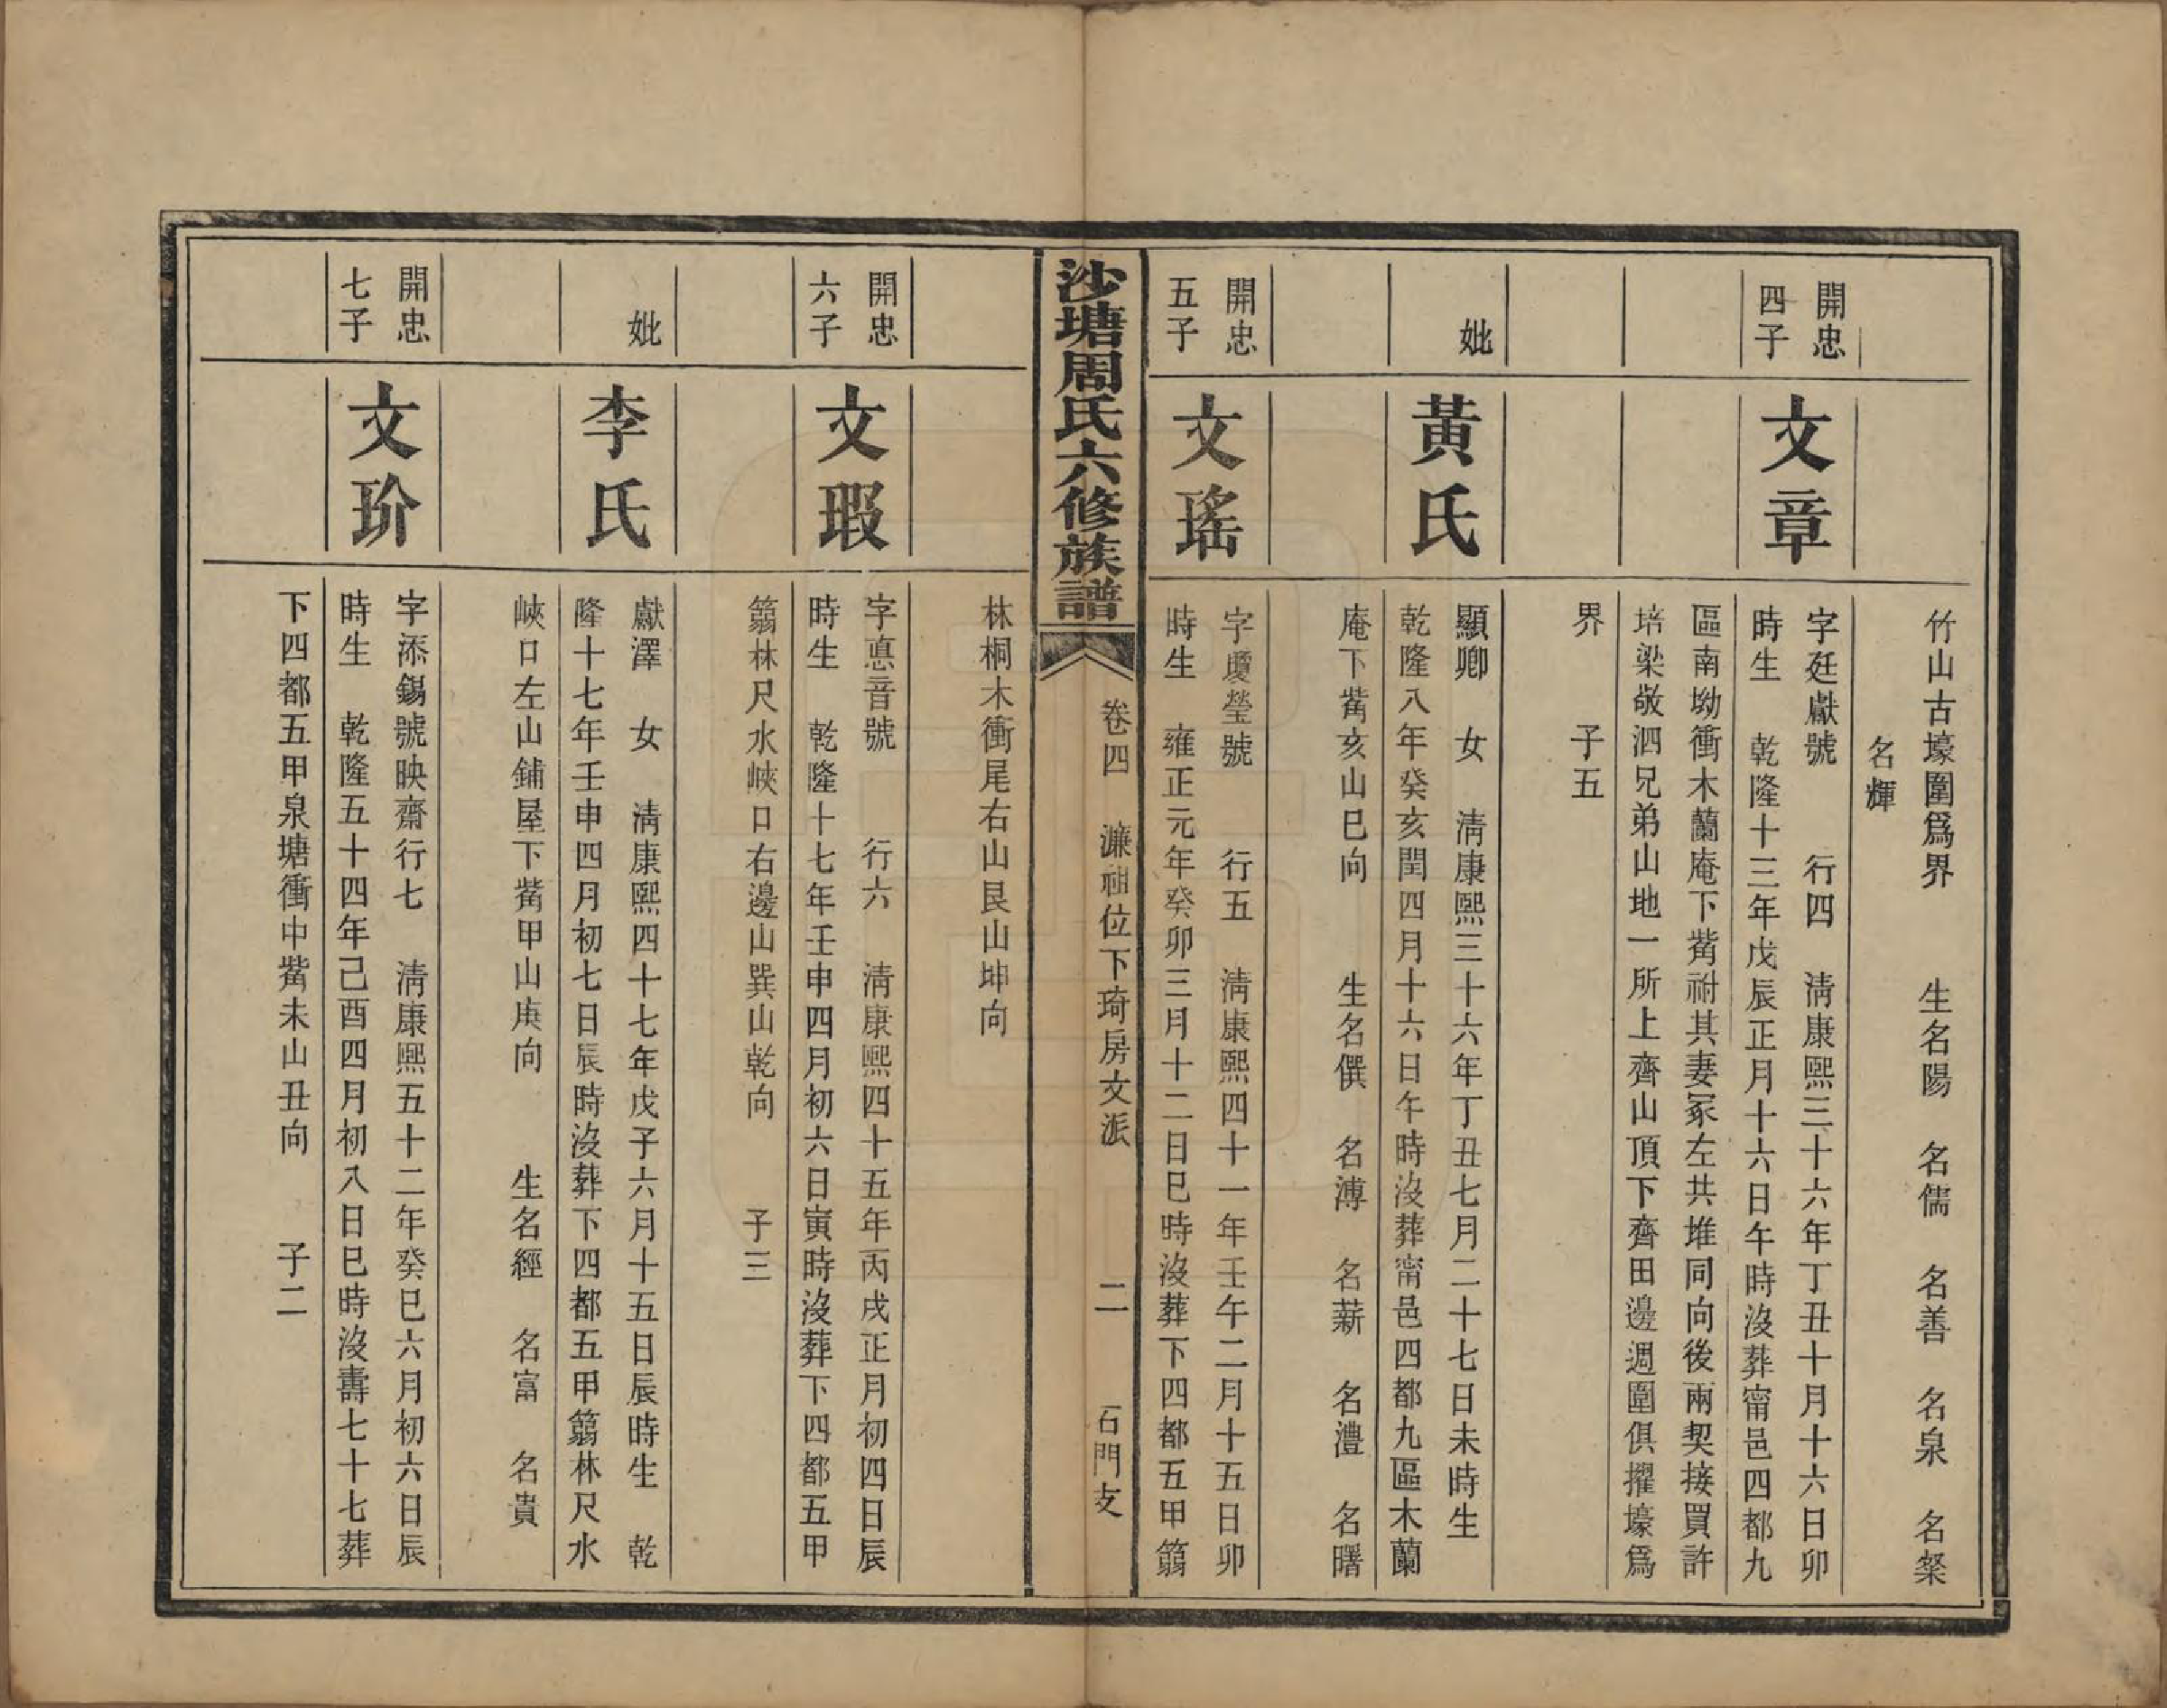 竹山古壕圍爲界 生名陽 名儒 名善 名泉 名粲
名輝
開忠
四子
文章
字廷獻號 行四 淸康熙三十六年丁丑十月十六日卯
時生 乾隆十三年戊辰正月十六日午時沒葬甯邑四都九
區南坳衝木蘭庵下觜祔其妻冢左共堆同向後兩契接買許
培梁敬泗兄弟山地一所上齊山頂下齊田邊週圍俱擢壕爲
界 子五
妣
黃氏
顯卿 女 淸康熙三十六年丁丑七月二十七日未時生
乾隆八年癸亥閏四月十六日午時沒葬甯邑四都九區木蘭
庵下觜亥山巳向 生名僎 名溥 名薪 名灃 名曙
開忠
五子
文瑤
字瓊瑩號 行五 淸康熙四十一年壬午二月十五日卯
時生 雍正元年癸卯三月十二日巳時沒葬下四都五甲篛
沙塘周氏六修族譜
卷四 濂祖位下琦房文派 二 石門支
林桐木衝尾右山艮山坤向
開忠
六子
文瑕
字惪音號 行六 淸康熙四十五年丙戌正月初四日辰
時生 乾隆十七年壬申四月初六日寅時沒葬下四都五甲
篛林尺水峽口右邊山巽山乾向 子三
妣
李氏
獻澤 女 淸康熙四十七年戊子六月十五日辰時生 乾
隆十七年壬申四月初七日辰時沒葬下四都五甲篛林尺水
峽口左山鋪屋下觜甲山庚向 生名經 名富 名貴
開忠
七子
文玠
字添錫號映齋行七 淸康熙五十二年癸巳六月初六日辰
時生 乾隆五十四年己酉四月初八日巳時沒壽七十七葬
下四都五甲泉塘衝中觜未山丑向 子二